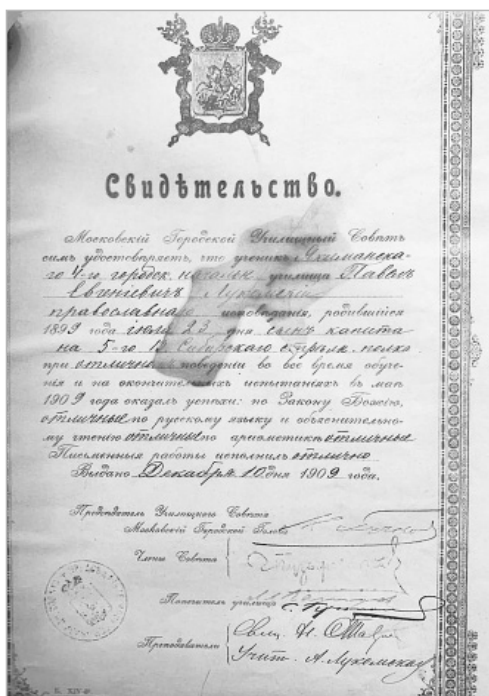 Свидѣтельство.
Московскій Городской Училищный Совѣтъ
симъ удостовѣряетъ, что ученикъ
го 4-го городск. начальн. училища Павелъ
Евгеніевичъ Лукомскій
православнаго исповѣданія, родившійся
1899 года іюля 23 дня сынъ капита
на 5-го Сибирскаго стрѣлк. полка
при отличномъ поведеніи во все время обуче-
нія и на окончательныхъ испытаніяхъ въ маѣ
1909 года оказалъ успѣхи: по Закону Божію,
отличные по русскому языку и объяснительно-
му чтенію отличные по ариѳметикѣ отличные
Письменныя работы исполнилъ отлично
Выдано Декабря 10 дня 1909 года.
Предсѣдатель Училищнаго Совѣта
Московскій Городской Голова
Члены Совѣта
Попечитель училища
Преподаватели
Свящ. Н.
Учит. А. Лукомская